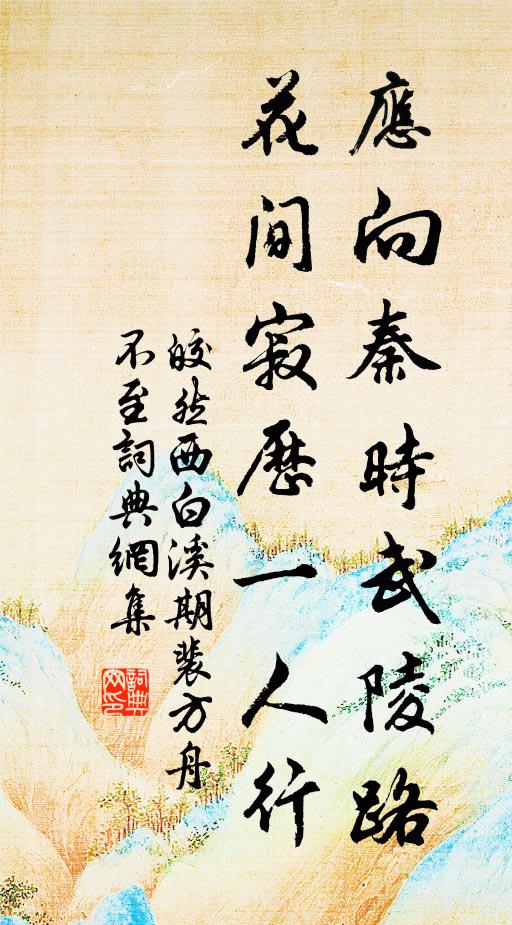 應向秦時武陵路
花間寂歷一人行
皎然西白溪期裴方舟
不至詞典網集
詞典
网印